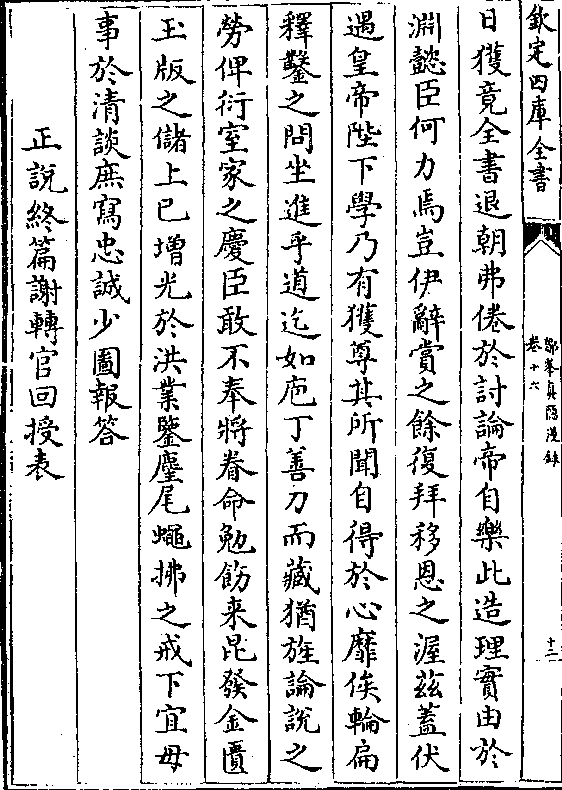 欽定四庫全書
鄮峯真隱漫錄
卷十六
十二
日獲竟全書退朝弗倦於討論帝自樂此造理實由於
淵懿臣何力焉豈伊辭賞之餘復拜移恩之渥茲蓋伏
遇皇帝陛下學乃有獲尊其所聞自得於心靡俟輪扁
釋鑿之問坐進乎道迄如庖丁善刀而藏猶旌論說之
勞俾衍室家之慶臣敢不奉將眷命勉飭来昆發金匱
玉版之儲上已增光於洪業鑒麈尾蠅拂之戒下宜毋
事於清談庶寫忠誠少圖報答
正說終篇謝轉官回授表